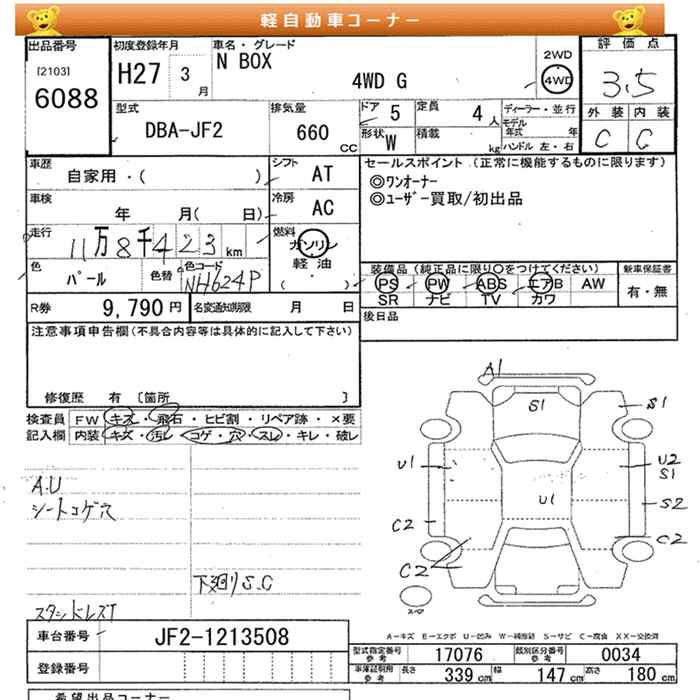 軽自動車コーナー
出品番号
[2103]
6088
初度登録年月
H27 3月
車名・グレード
N BOX
4WD G
2WD
4WD
評価点
3.5
外装 内装
C C
型式
DBA-JF2
排気量
660 CC
ドア 5
定員 4人
形状 W
積載 kg
ディーラー・並行
モデル年式 年
ハンドル 左・右
車歴
自家用・( )
シフト AT
車検
年 月( 日)
冷房 AC
走行
11万8千423km
燃料
ガソリン
軽油
( )
色
パール
色替
色コード
NH624P
R券 9,790円
名変通知期限 月 日
セールスポイント (正常に機能するものに限ります)
◎ワンオーナー
◎ユーザー買取/初出品
装備品 (純正品に限り○をつけてください)
PS PW ABS エアB AW
SR ナビ TV カワ
新車保証書
有・無
後日品
注意事項申告欄(不具合内容等は具体的に記入して下さい)
修復歴 有 [箇所 ]
検査員記入欄
FW キズ・飛石・ヒビ割・リペア跡・×要
内装 キズ・汚レ・コゲ・穴・スレ・キレ・破レ
A.U
シートコゲ穴
下廻りS.C
スタンドレスT
A1
S1
S1
U1
U2
S1
U1
S2
C2
C2
C2
スペア
A-キズ E-エクボ U-凹み W-補修跡 S-サビ C-腐食 XX-交換済
車台番号
JF2-1213508
登録番号
型式指定番号 参考 17076
類別区分番号 参考 0034
車庫証明用 参考 長さ 339 cm 幅 147 cm 高さ 180 cm
希望出品コーナー